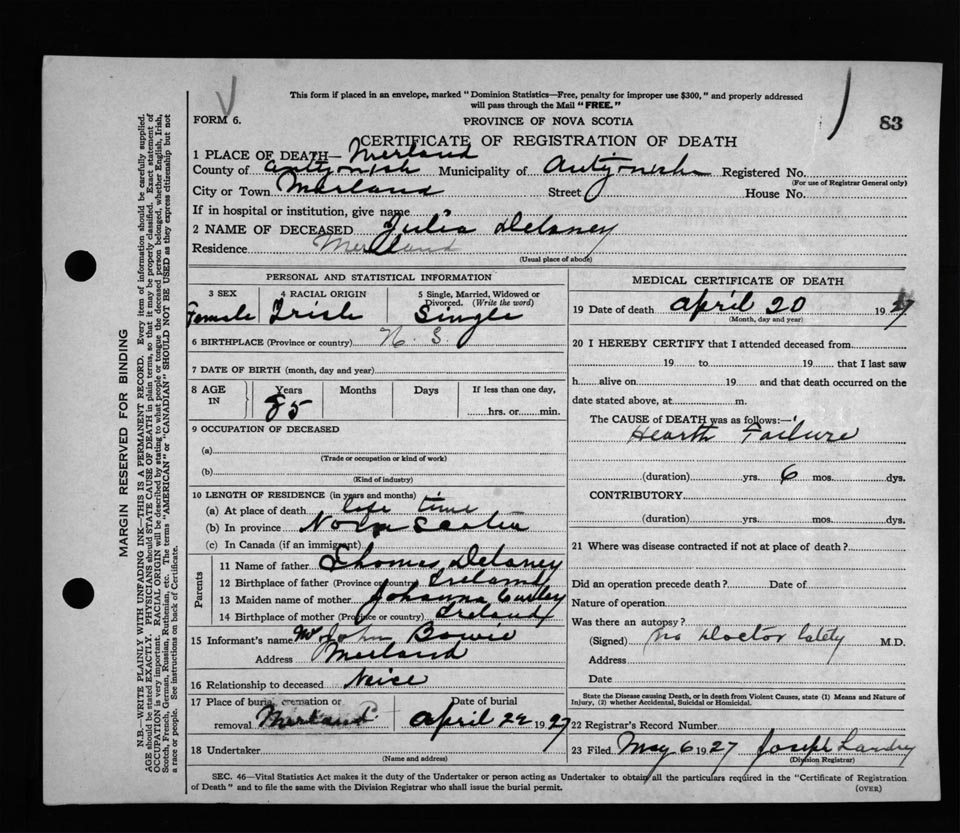 This form if placed in an envelope, marked "Dominion Statistics—Free, penalty for improper use $300," and properly addressed
will pass through the Mail "FREE."
FORM 6.
PROVINCE OF NOVA SCOTIA
83
CERTIFICATE OF REGISTRATION OF DEATH
1 PLACE OF DEATH— Merland
County of Antigonish Municipality of Antigonish Registered No.
(For use of Registrar General only)
City or Town Merland Street House No.
If in hospital or institution, give name
2 NAME OF DECEASED Julia Delaney
Residence Merland
(Usual place of abode)
PERSONAL AND STATISTICAL INFORMATION
3 SEX 4 RACIAL ORIGIN 5 Single, Married, Widowed or
Divorced. (Write the word)
Female Irish Single
6 BIRTHPLACE (Province or country) N. S.
7 DATE OF BIRTH (month, day and year)
8 AGE IN Years Months Days If less than one day,
85 hrs. or min.
9 OCCUPATION OF DECEASED
(a)
(Trade or occupation or kind of work)
(b)
(Kind of industry)
10 LENGTH OF RESIDENCE (in years and months)
(a) At place of death life time
(b) In province Nova Scotia
(c) In Canada (if an immigrant)
Parents
11 Name of father Thomas Delaney
12 Birthplace of father (Province or country) Ireland
13 Maiden name of mother Johanna Curley
14 Birthplace of mother (Province or country) Ireland
15 Informant's name John Bowie
Address Merland
16 Relationship to deceased Neice
17 Place of burial, cremation or Date of burial
removal Merland April 22 1927
18 Undertaker
(Name and address)
MEDICAL CERTIFICATE OF DEATH
19 Date of death April 20 1927
(Month, day and year)
20 I HEREBY CERTIFY that I attended deceased from
19 to 19 that I last saw
h alive on 19 and that death occurred on the
date stated above, at m.
The CAUSE of DEATH was as follows:—
Hearth Failure
(duration) yrs. 6 mos. dys.
CONTRIBUTORY
(duration) yrs. mos. dys.
21 Where was disease contracted if not at place of death?
Did an operation precede death? Date of
Nature of operation
Was there an autopsy?
(Signed) no Doctor M.D.
Address
Date
State the Disease causing Death, or in death from Violent Causes, state (1) Means and Nature of
Injury, (2) whether Accidental, Suicidal or Homicidal.
22 Registrar's Record Number
23 Filed May 6 1927 Joseph Landry
(Division Registrar)
SEC. 46—Vital Statistics Act makes it the duty of the Undertaker or person acting as Undertaker to obtain all the particulars required in the "Certificate of Registration
of Death" and to file the same with the Division Registrar who shall issue the burial permit.
(OVER)
MARGIN RESERVED FOR BINDING
N.B.—WRITE PLAINLY WITH UNFADING INK—THIS IS A PERMANENT RECORD. Every item of information should be carefully supplied.
AGE should be stated EXACTLY. PHYSICIANS should STATE CAUSE OF DEATH in plain terms, so that it may be properly classified. Exact statement of
OCCUPATION is very important. RACIAL ORIGIN will be described by stating to what people or tongue the deceased person belonged, whether English, Irish,
Scotch, French, German, Russian, Ruthenian, etc. The terms "AMERICAN" or "CANADIAN" SHOULD NOT BE USED as they express citizenship but not
a race or people. See instructions on back of Certificate.